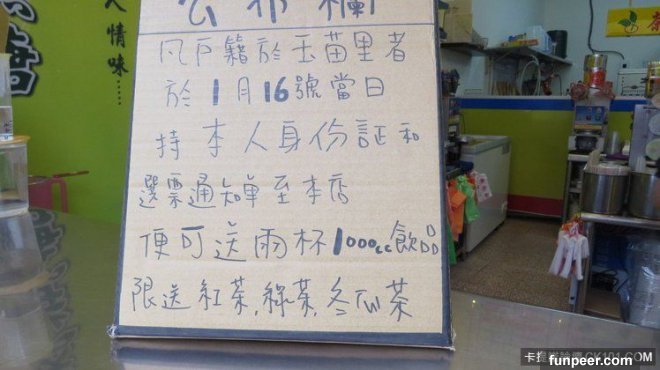 公布欄
凡戶籍於玉苗里者
於1月16號當日
持本人身份証和
選票通知單至本店
便可送兩杯1000cc飲品
限送紅茶,綠茶,冬瓜茶
人情味……
茶
funpeer.com